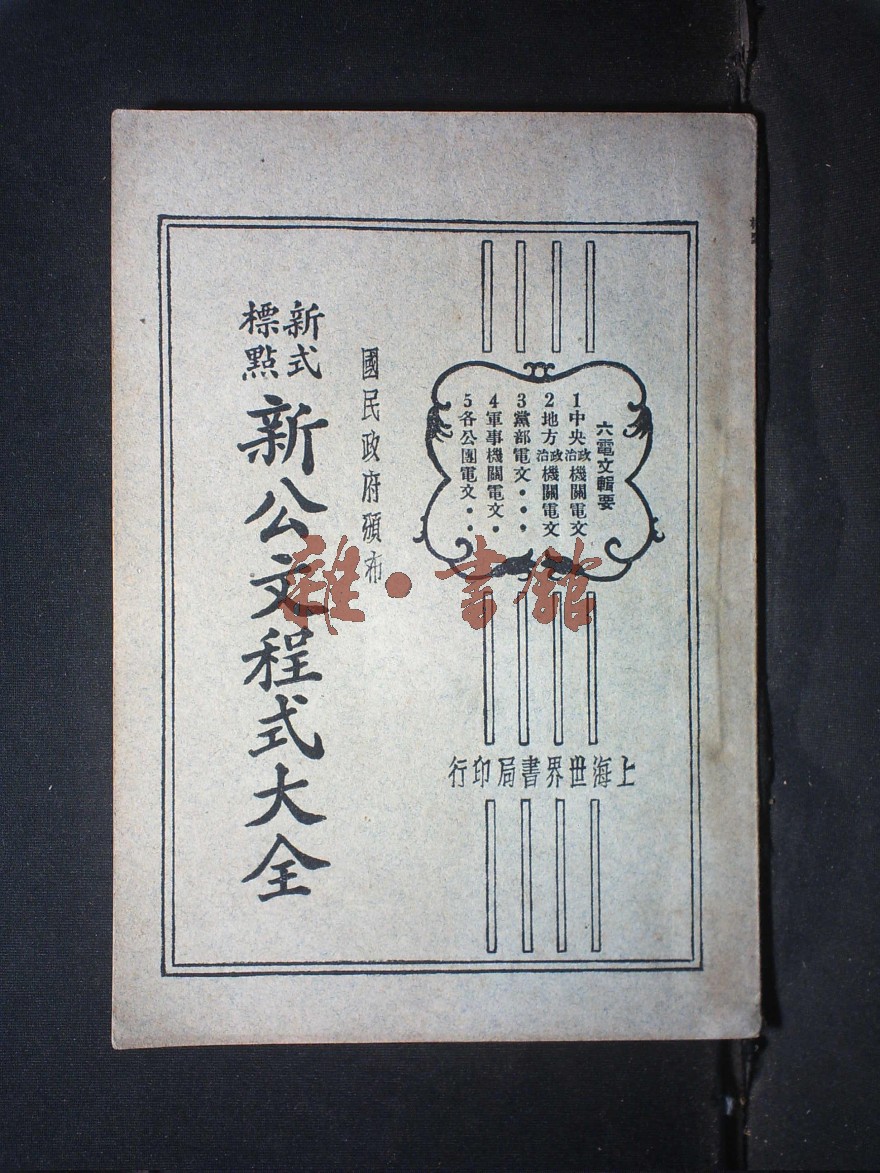 六電文輯要
1中央政治機關電文
2地方政治機關電文
3黨部電文・・・
4軍事機關電文・
5各公團電文・・
國民政府頒布
新式標點
新公文程式大全
上海世界書局印行
雜・書館